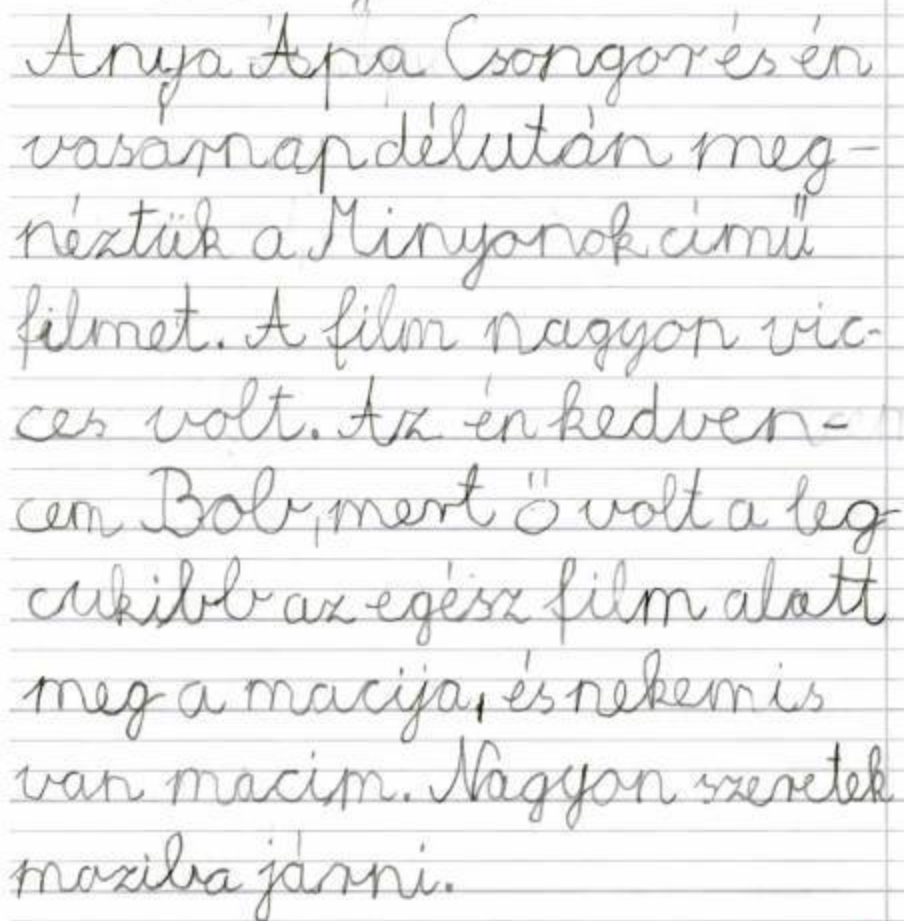 Anya Apa Csongor és én
vasárnap délután meg-
néztük a Minyonok című
filmet. A film nagyon vic-
ces volt. Az én kedven-
cem Bob, mert ő volt a leg-
cukibb az egész film alatt
meg a macija, és nekem is
van macim. Nagyon szeretek
moziba járni.